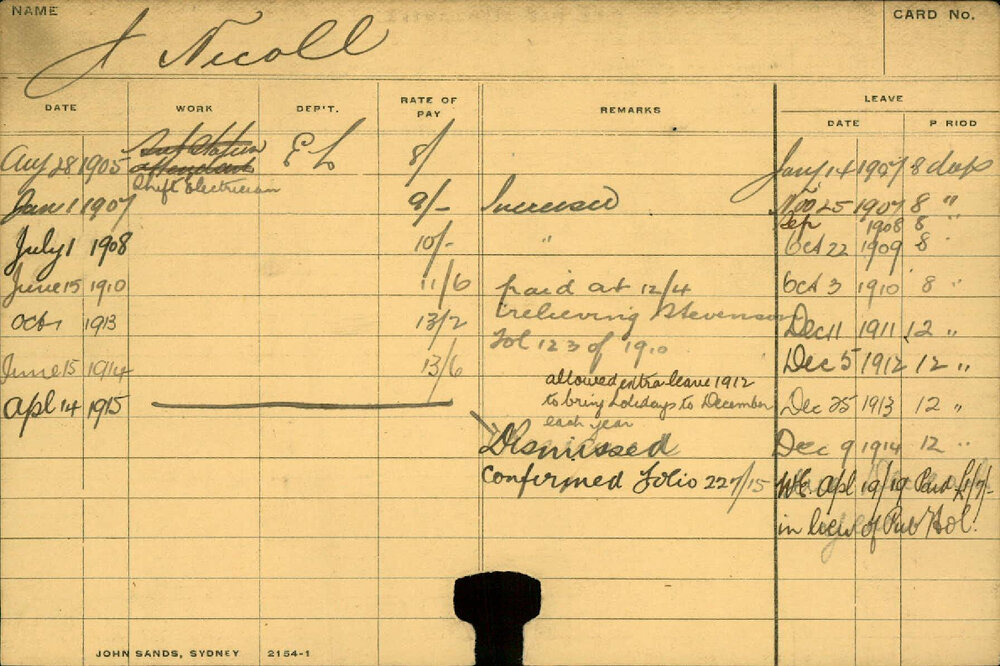 NAME
CARD No.
J Nicoll
DATE WORK DEP'T. RATE OF PAY REMARKS LEAVE
DATE PERIOD
Aug 28 1905 Sub Station attendant E L 8/
Shift Electrician
Jany 14 1907 8 days
Jan 1 1907 9/- Increased
Nov 25 1907 8 "
Sep 1908 8 "
July 1 1908 10/- "
Oct 22 1909 8 "
June 15 1910 11/6 paid at 12/4
Oct 3 1910 8 "
Oct 1 1913 13/2 relieving Stevenson
Dec 11 1911 12 "
Fol 123 of 1910
June 15 1914 13/6
Dec 5 1912 12 "
allowed extra leave 1912
Apl 14 1915 to bring holidays to December
Dec 25 1913 12 "
each year
Dismissed
Dec 9 1914 12 "
Confirmed Folio 227/15
Apl 19/19 Paid £1/7/-
in lieu of Pub Hol.
JOHN SANDS, SYDNEY 2154-1